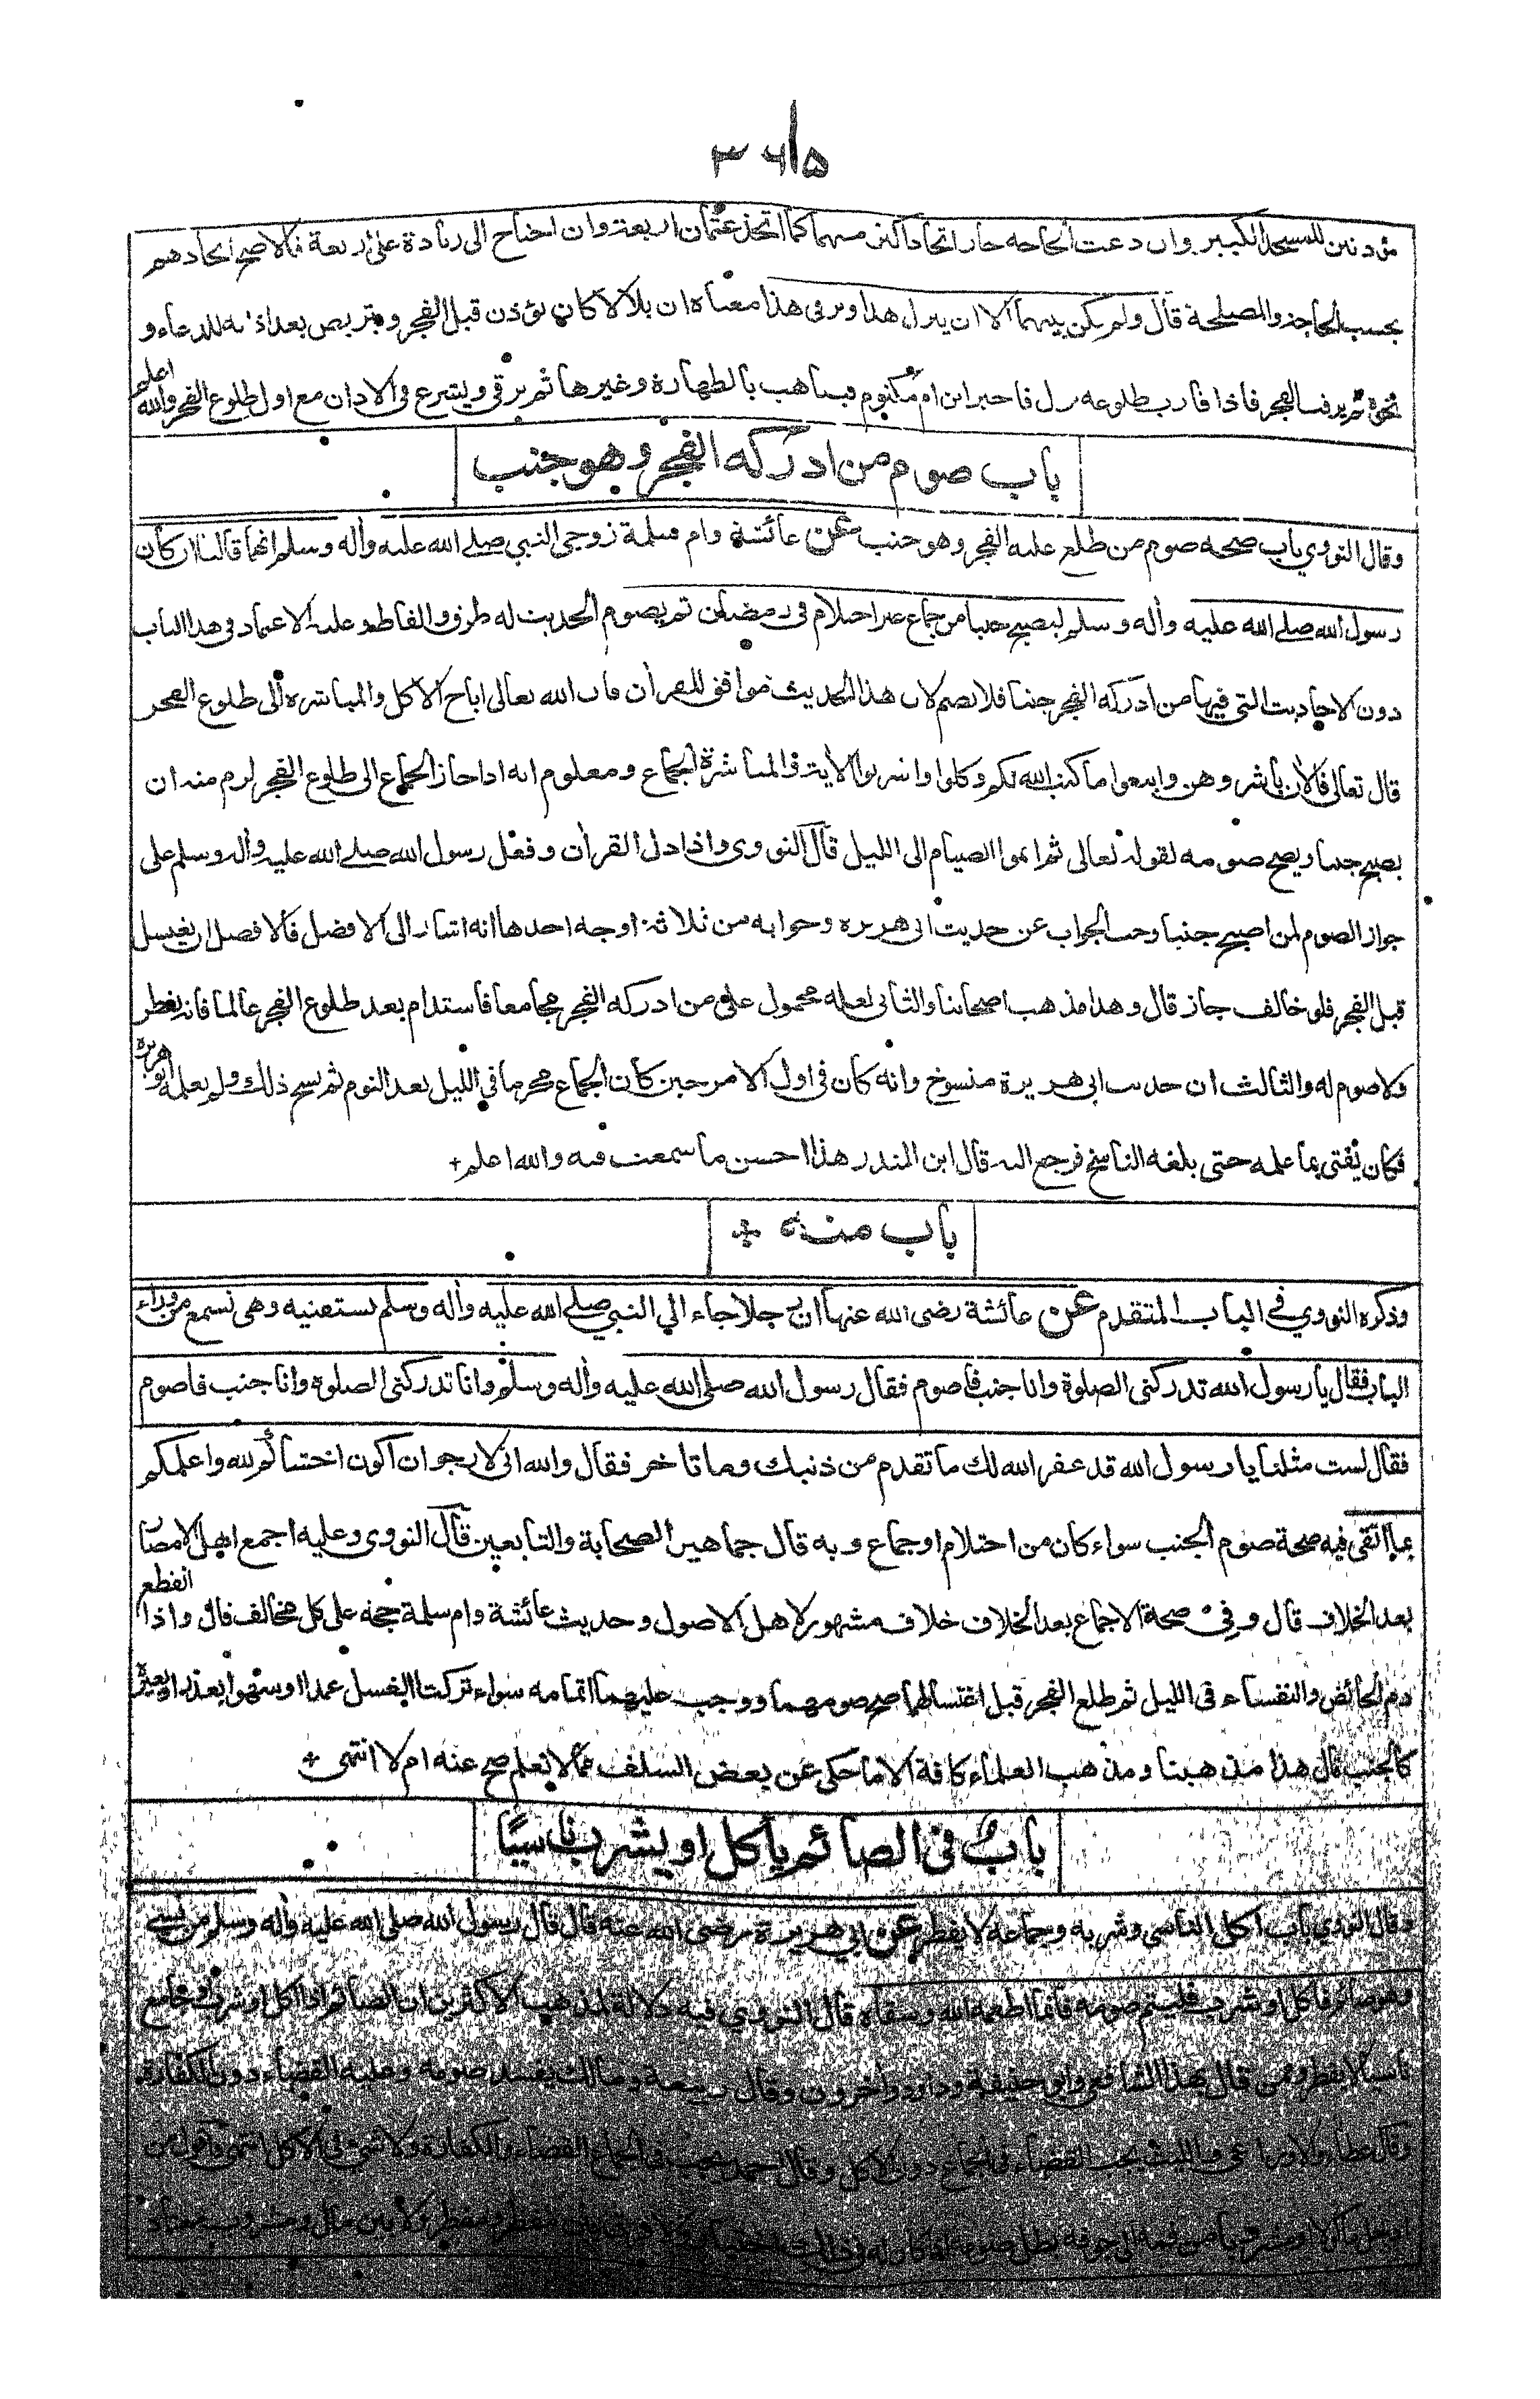 ٣٦٥
مؤذنين للمسجد الكبير وان دعت الحاجة جاز اتخاذ اكثر منهما كما اتخذ عثمان اربعة وان احتاج الى زيادة على اربعة فالاصح اتخاذهم
بحسب الحاجة والمصلحة قال ولم يكن بينهما الا ان ينزل هذا ويرقى هذا معناه ان بلالا كان يؤذن قبل الفجر ويتربص بعد اذانه للدعاء و
نحوه ثم يرقب الفجر فاذا قارب طلوعه نزل فاخبر ابن ام مكتوم فيتاهب بالطهارة وغيرها ثم يرقى ويشرع فى الاذان مع اول طلوع الفجر والله اعلم
باب صوم من ادركه الفجر وهو جنب
وقال النووي باب صحة صوم من طلع عليه الفجر وهو جنب عن عائشة وام سلمة زوجى النبي صلى الله عليه وأله وسلم انهما قالتا ان كان
رسول الله صلى الله عليه وأله وسلم ليصبح جنبا من جماع غير احتلام فى رمضان ثم يصوم الحديث له طرق والفاظ وعليه الاعتماد فى هذا الباب
دون الاحاديث التى فيها من ادركه الفجر جنبا فلا يصم لان هذا الحديث موافق للقرأن فان الله تعالى اباح الاكل والمباشرة الى طلوع الفجر
قال تعالى فالأن باشروهن وابتغوا ما كتب الله لكم وكلوا واشربوا الأية والمباشرة الجماع ومعلوم انه اذا جاز الجماع الى طلوع الفجر لزم منه ان
يصبح جنبا ويصح صومه لقوله تعالى ثم اتموا الصيام الى الليل قال النووى واذا دل القرأن وفعل رسول الله صلى الله عليه وأله وسلم على
جواز الصوم لمن اصبح جنبا وجب الجواب عن حديث ابى هريرة وجوابه من ثلاثة اوجه احدها انه اشار الى الافضل فالافضل ان يغتسل
قبل الفجر فلو خالف جاز قال وهذا مذهب اصحابنا والثانى لعله محمول على من ادركه الفجر مجامعا فاستدام بعد طلوع الفجر عالما فانه يفطر
ولا صوم له والثالث ان حديث ابى هريرة منسوخ وانه كان فى اول الامر حين كان الجماع محرما في الليل بعد النوم ثم نسخ ذلك ولم يعلمه ابو هريرة
فكان يفتى بما علمه حتى بلغه الناسخ فرجع اليه قال ابن المنذر هذا احسن ما سمعت فيه والله اعلم +
باب منه +
وذكره النووي في الباب المتقدم عن عائشة رضى الله عنها ان رجلا جاء الى النبي صلى الله عليه وأله وسلم يستفتيه وهى تسمع من وراء
الباب فقال يا رسول الله تدركنى الصلوة وانا جنب فاصوم فقال رسول الله صلى الله عليه وأله وسلم وانا تدركنى الصلوة وانا جنب فاصوم
فقال لست مثلنا يا رسول الله قد غفر الله لك ما تقدم من ذنبك وما تاخر فقال والله انى لارجو ان اكون اخشاكم لله واعلمكم
بما اتقى فيه صحة صوم الجنب سواء كان من احتلام او جماع وبه قال جماهير الصحابة والتابعين قال النووى وعليه اجمع اهل الامصار
بعد الخلاف قال وفي صحة الاجماع بعد الخلاف خلاف مشهور لاهل الاصول وحديث عائشة وام سلمة حجة على كل مخالف قال واذا انقطع
دم الحائض والنفساء فى الليل ثم طلع الفجر قبل اغتسالهما صح صومهما ووجب عليهما اتمامه سواء تركت الغسل عمدا او سهوا بعذر او بغيره
كالجنب قال هذا مذهبنا ومذهب العلماء كافة الا ما حكى عن بعض السلف مما لا نعلم صح عنه ام لا انتهى +
باب فى الصائم يأكل او يشرب ناسيًا
وقال النووي باب اكل الناسى وشربه وجماعه لا يفطر عن ابي هريرة رضى الله عنه قال قال رسول الله صلى الله عليه وأله وسلم من نسي
وهو صائم فاكل او شرب فليتم صومه فانما اطعمه الله وسقاه قال النووي فيه دلالة لمذهب الاكثرين ان الصائم اذا اكل او شرب او جامع
ناسيا لا يفطر وممن قال بهذا الشافعى وابو حنيفة وداود وأخرون وقال ربيعة ومالك يفسد صومه وعليه القضاء دون الكفارة
وقال عطاء والاوزاعى والليث يجب القضاء فى الجماع دون الاكل وقال احمد يجب فى الجماع القضاء والكفارة ولا شئ فى الاكل انتهى